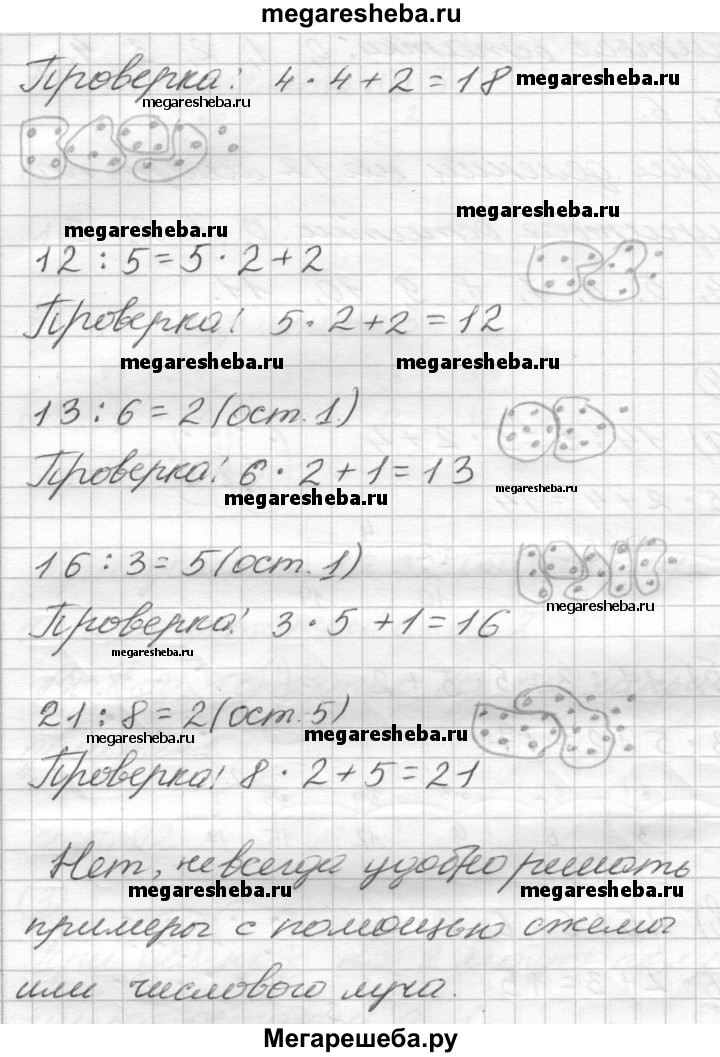 megaresheba.ru
Проверка: 4 · 4 + 2 = 18 megaresheba.ru
megaresheba.ru
megaresheba.ru
megaresheba.ru
12 : 5 = 5 · 2 + 2
Проверка! 5 · 2 + 2 = 12
megaresheba.ru megaresheba.ru
13 : 6 = 2 (ост. 1)
Проверка! 6 · 2 + 1 = 13
megaresheba.ru megaresheba.ru
16 : 3 = 5 (ост. 1)
megaresheba.ru
Проверка! 3 · 5 + 1 = 16
megaresheba.ru
21 : 8 = 2 (ост. 5)
megaresheba.ru megaresheba.ru
Проверка! 8 · 2 + 5 = 21
Нет, не всегда удобно решать
megaresheba.ru megaresheba.ru
примеры с помощью схемы
или числового луча.
Мегарешеба.ру